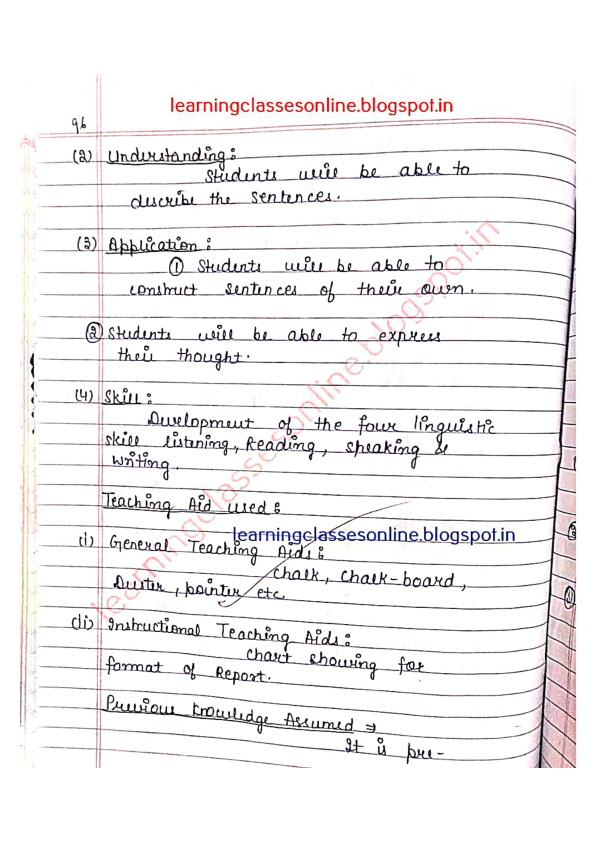 learningclassesonline.blogspot.in
96
(2) Understanding :
Students will be able to
describe the sentences.
(3) Application :
① Students will be able to
construct sentences of their own.
② Students will be able to express
their thought.
(4) Skill :
Development of the four linguistic
skill listening, Reading, speaking &
writing.
Teaching Aid used :
learningclassesonline.blogspot.in
(i) General Teaching Aids :
chalk, chalk-board,
Duster, pointer etc
(ii) Instructional Teaching Aids :
chart showing for
format of Report.
Previous knowledge Assumed →
It is pre-
learningclassesonline.blogspot.in